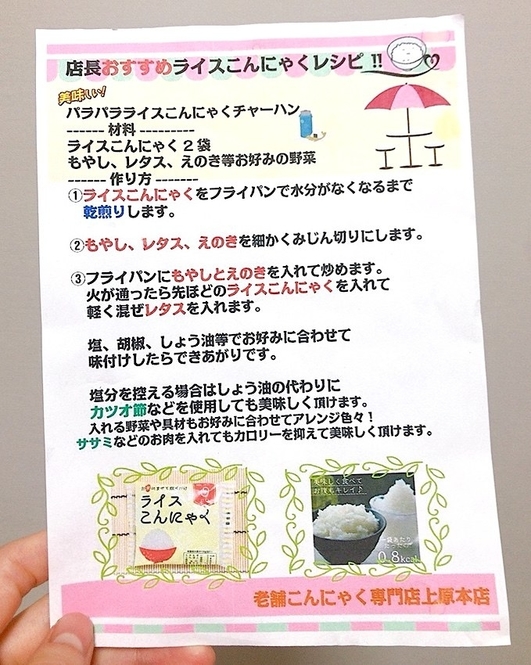 店長おすすめライスこんにゃくレシピ!!
美味い!
パラパラライスこんにゃくチャーハン
------ 材料 ---------
ライスこんにゃく2袋
もやし、レタス、えのき等お好みの野菜
------ 作り方 -------
①ライスこんにゃくをフライパンで水分がなくなるまで
乾煎りします。
②もやし、レタス、えのきを細かくみじん切りにします。
③フライパンにもやしとえのきを入れて炒めます。
火が通ったら先ほどのライスこんにゃくを入れて
軽く混ぜレタスを入れます。
塩、胡椒、しょう油等でお好みに合わせて
味付けしたらできあがりです。
塩分を控える場合はしょう油の代わりに
カツオ節などを使用しても美味しく頂けます。
入れる野菜や具材もお好みに合わせてアレンジ色々!
ササミなどのお肉を入れてもカロリーを抑えて美味しく頂けます。
ライス
こんにゃく
美味しく食べて
お腹もキレイ♪
一袋あたり
0.8kcal
老舗こんにゃく専門店上原本店